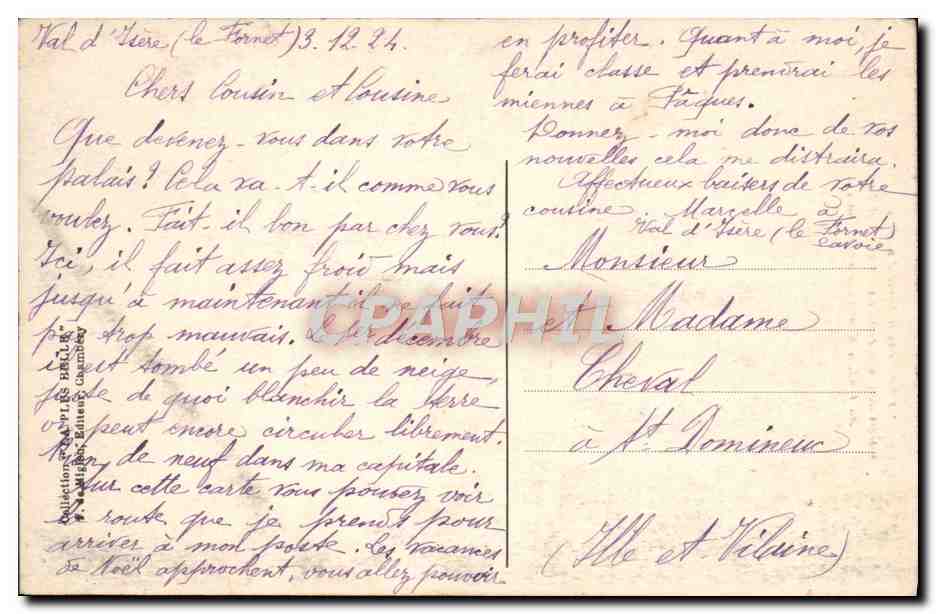 Val d'Isère (le Fornet) 3.12.24.
Chers Cousin et Cousine
Que devenez-vous dans votre
palais? Cela va-t-il comme vous
voulez. Fait-il bon par chez vous?
Ici, il fait assez froid mais
jusqu'à maintenant il ne fait
pas trop mauvais. Le 1er décembre
il est tombé un peu de neige,
juste de quoi blanchir la terre
on peut encore circuler librement.
Rien de neuf dans ma capitale.
Sur cette carte vous pouvez voir
la route que je prends pour
arriver à mon poste. Les vacances
de Noël approchent, vous allez pouvoir
en profiter. Quant à moi, je
ferai classe et prendrai les
miennes à Pâques.
Donnez-moi donc de vos
nouvelles cela me distraira.
Affectueux baisers de votre
cousine Marcelle à
Val d'Isère (le Fornet)
savoie
Monsieur
et Madame
Cheval
à St Domineuc
(Ille et Vilaine)
Collection "ETAPLES BELLE"
Editeur, Chambéry
CPAPHIL